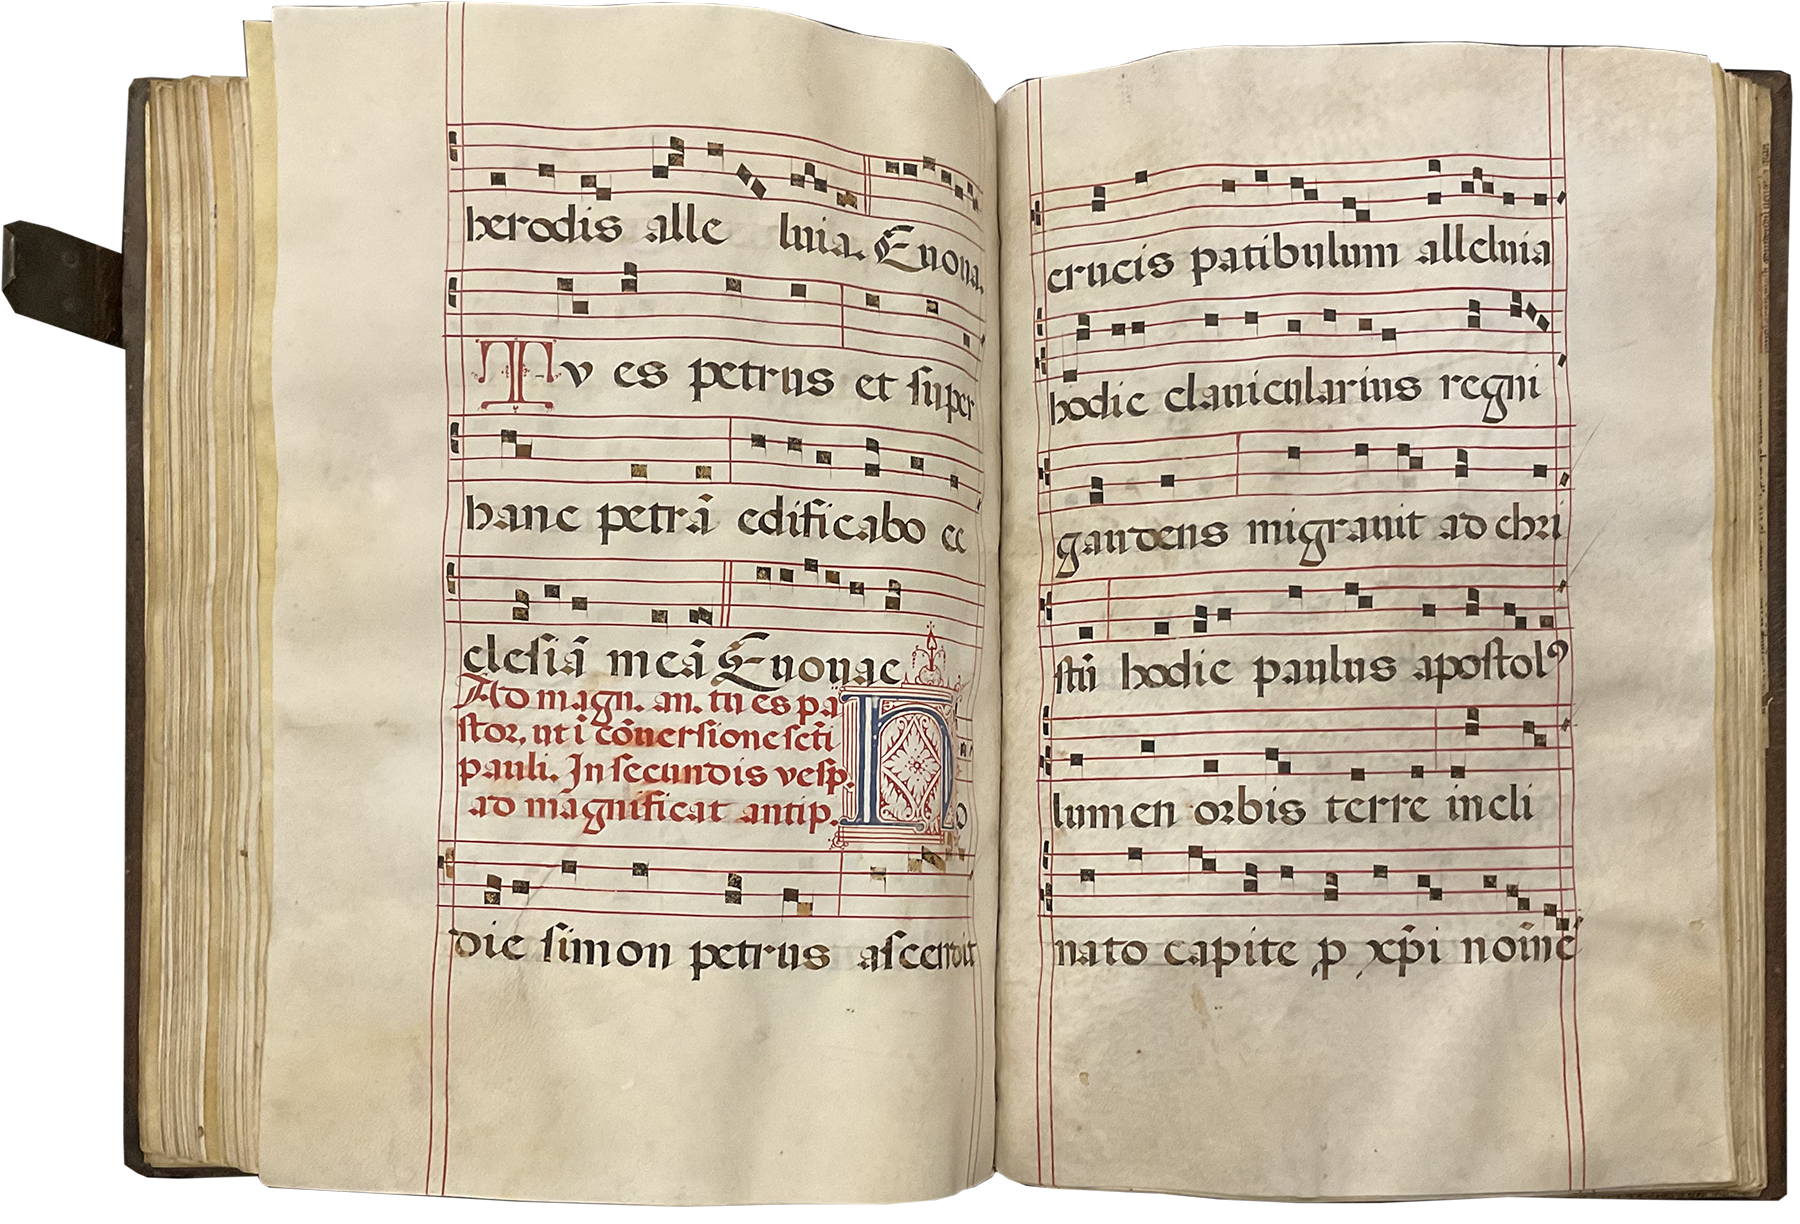 herodis alle luia. Euoua.
Tv es petrus et ſuper
hanc petrā edificabo ec
cleſiā meā Euouae
Ad magn. an. tu es pa
ſtor, ut ī cōuerſione ſcti
pauli. In ſecundis veſp.
ad magnificat antip. Ho
die ſimon petrus aſcendit
crucis patibulum alleluia
hodie clauicularius regni
gaudens migrauit ad chri
ſtū hodie paulus apoſtolꝰ
lumen orbis terre incli
nato capite ꝑ xp̄i noīne